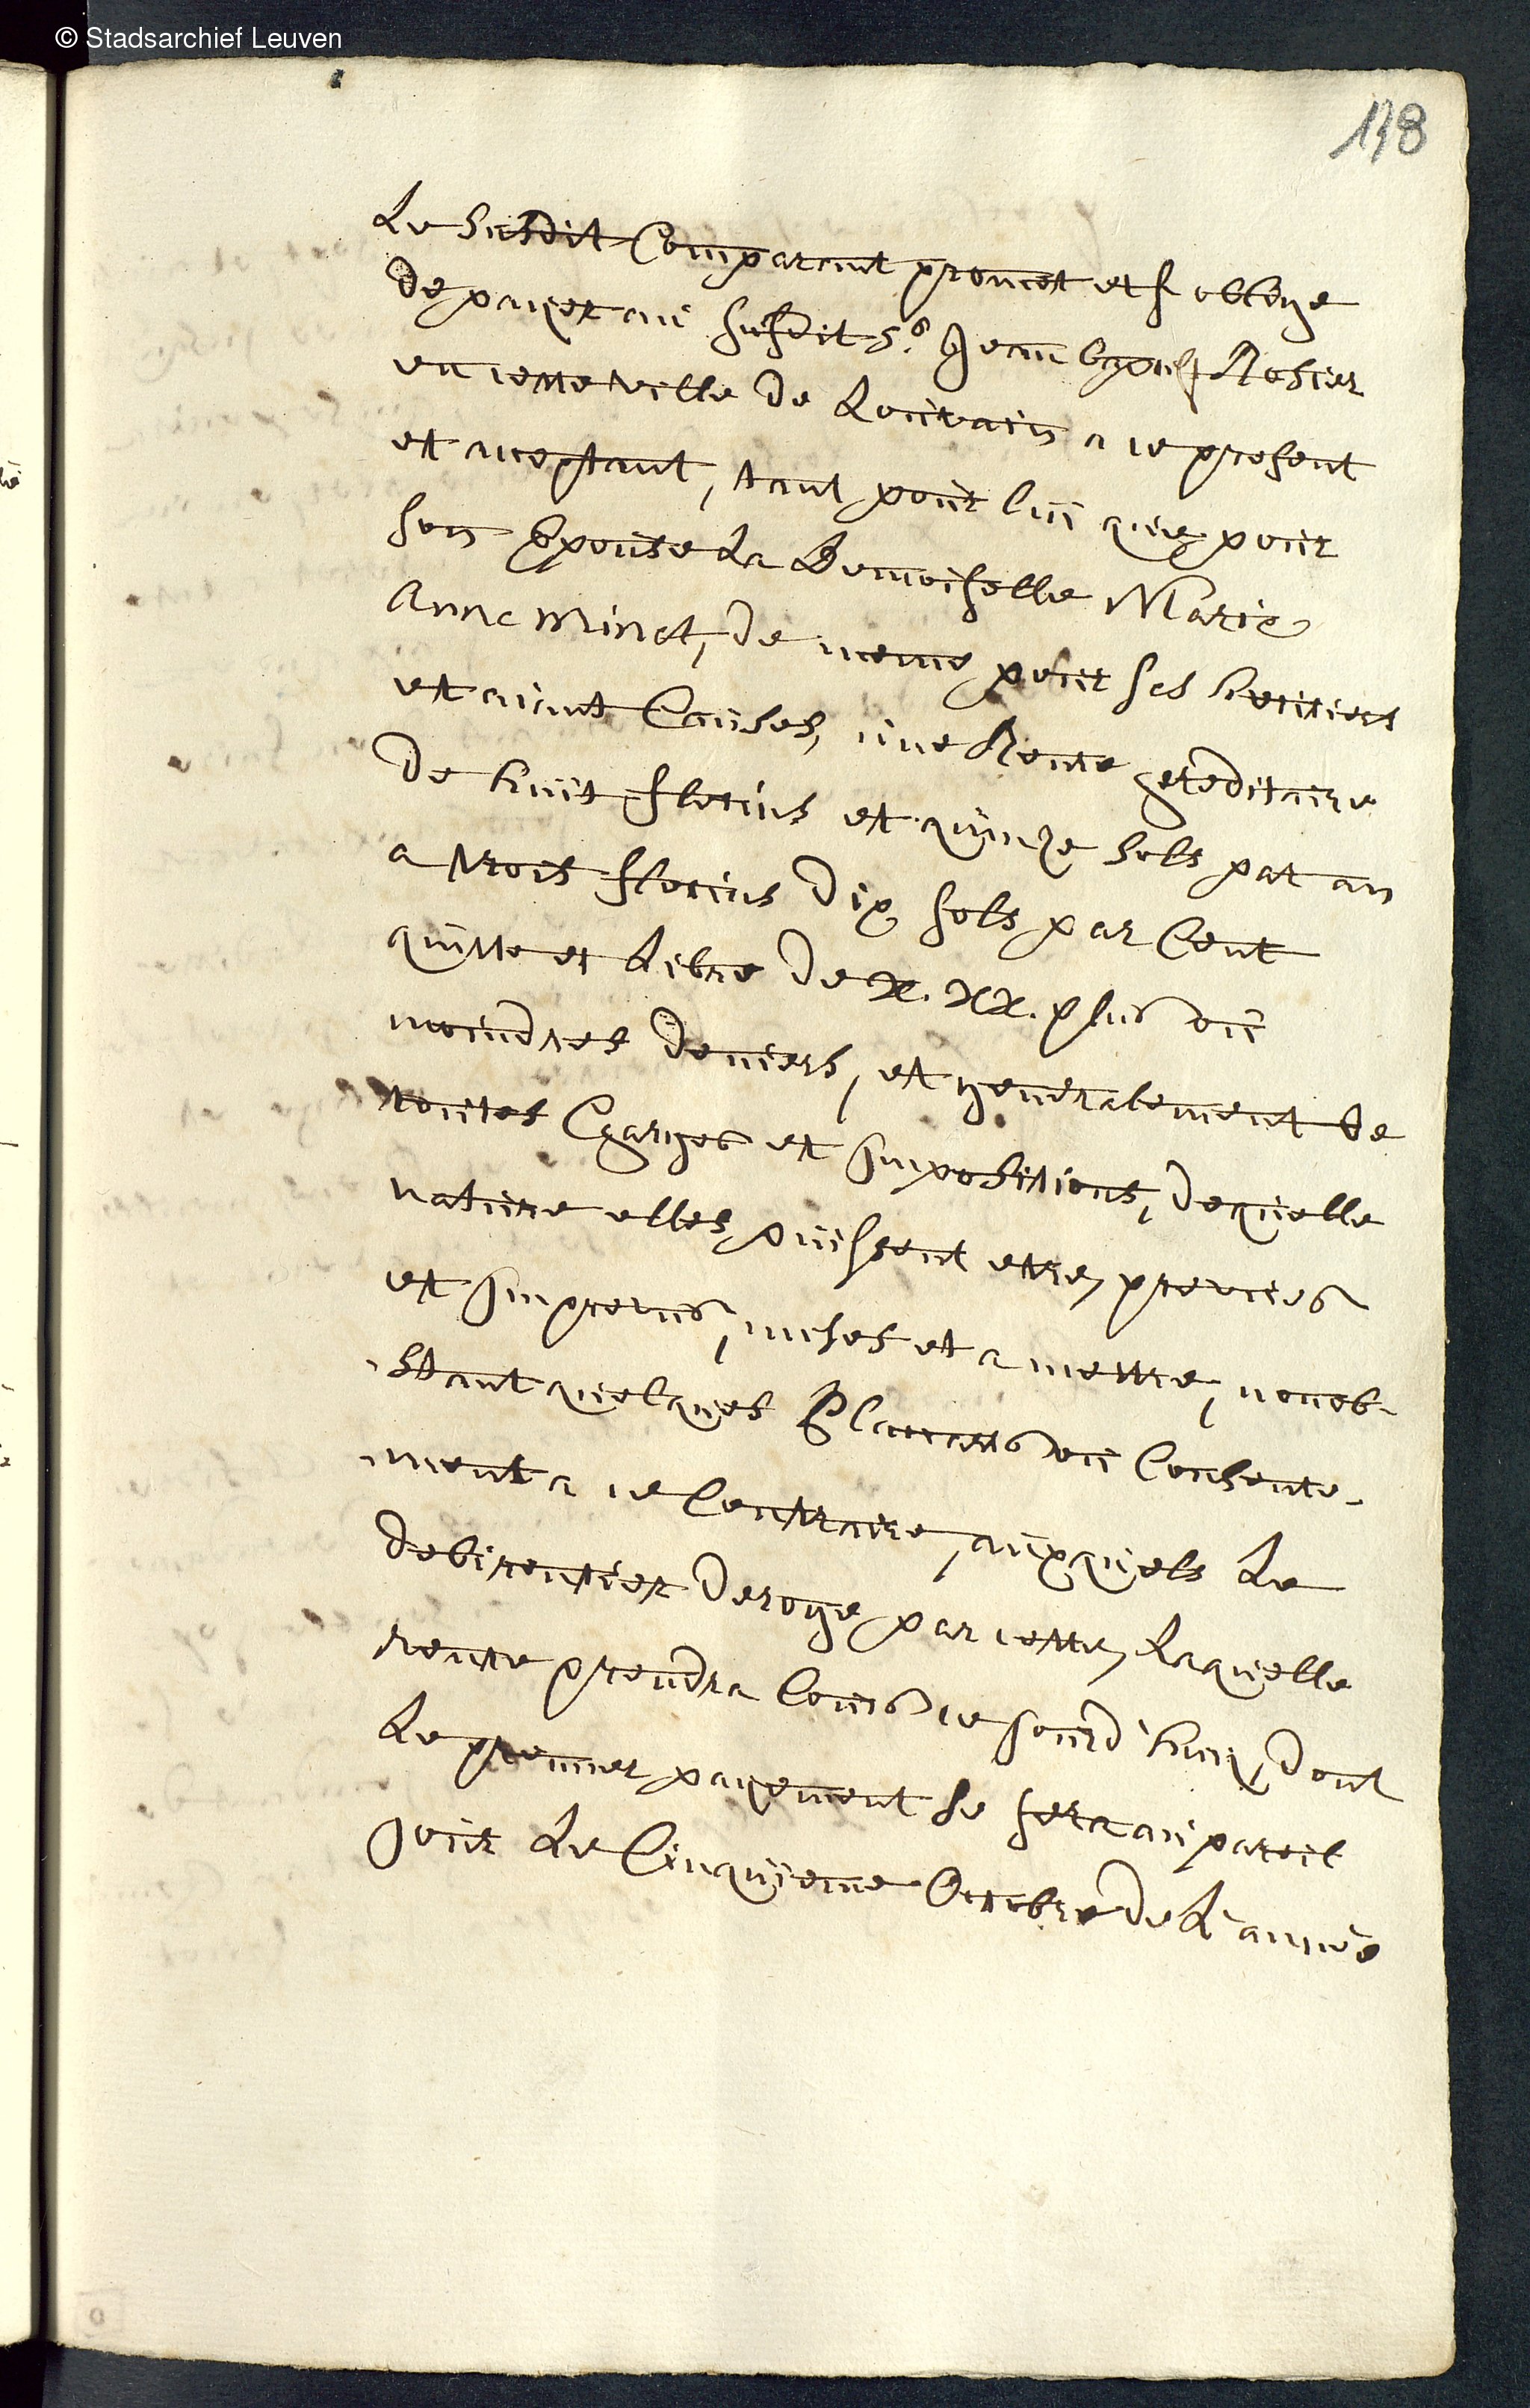 © Stadsarchief Leuven
118
Le susdit Comparant promet et s'oblige
de payer au susdit Sr. Jean bapt. Rosier
en cette ville de Louvain a ce present
et aceptant, tant pour lui que pour
son Epouse La Demoiselle Marie
Anne Minet, de meme pour ses heritiers
et aiant Causes, une Rente hereditaire
de huit florins et quinze sols par an
a trois florins dix sols par Cent
quitte et Libre de X. XX. plus ou
moindres deniers, et generalement de
toutes Charges et Impositions, de quelle
nature elles puissent etre, prevues
et Imprevus, mises et a mettre, nonob-
stant quelques Placcarts ou Consente-
ment a ce Contraire, auxquels Le
debirentier deroge par cette, Laquelle
rente prendra Cours ce jourd'huy, dont
Le premier payement se fera au pareil
jour Le Cinquieme Octobre de L'année